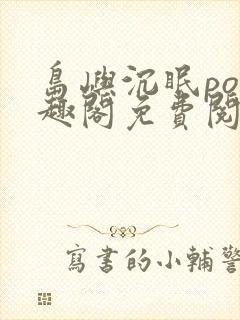 島嶼沉眠po
趣閣免費閱
寫書的小輔警